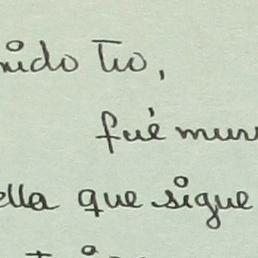 nido Tio,
fué mun
ella que sigue